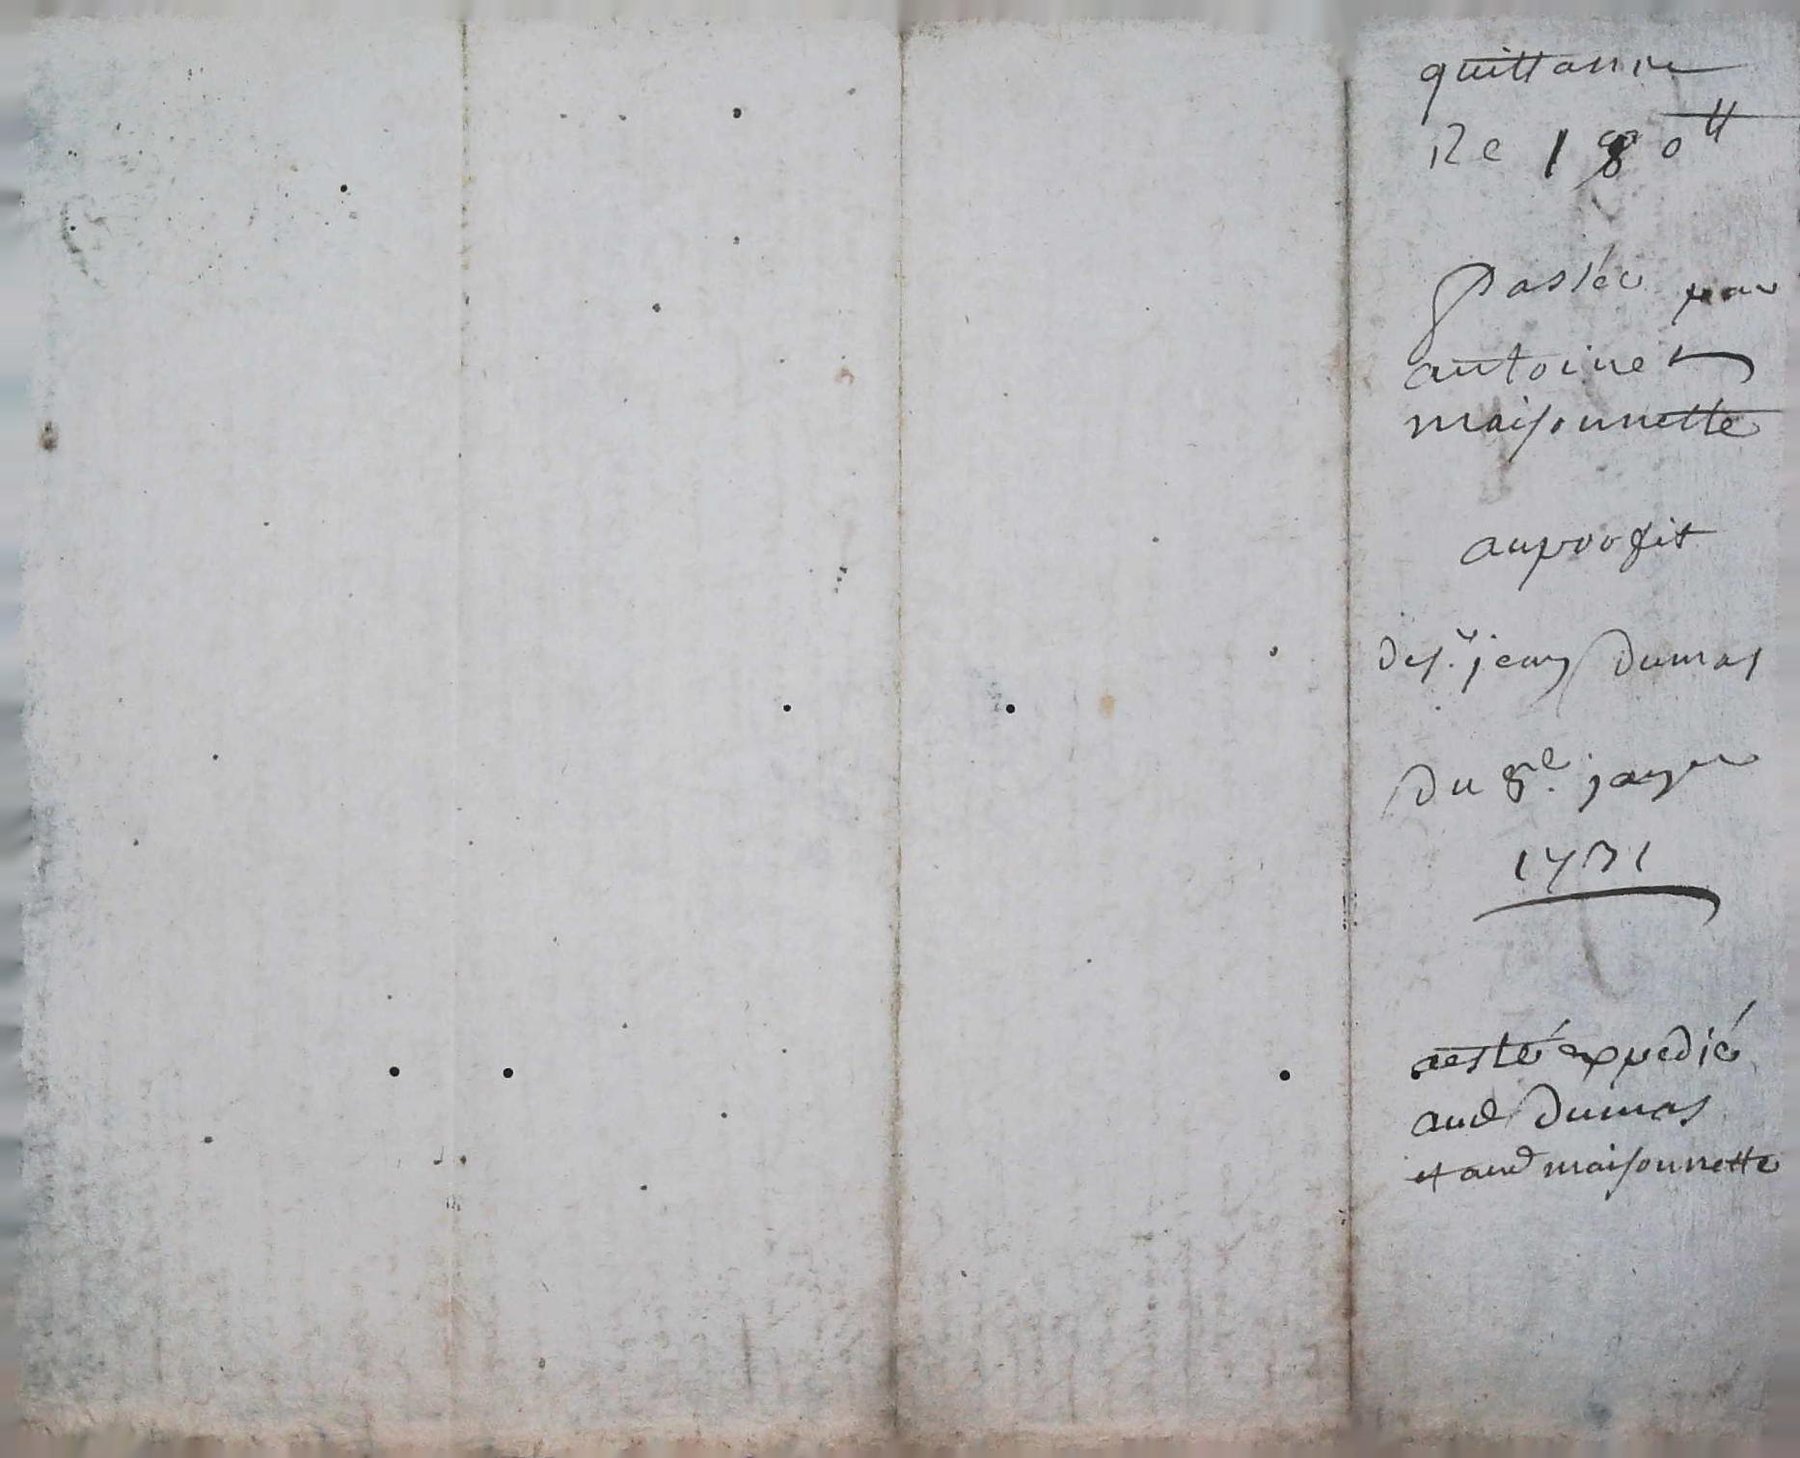 quittance
De 180ᵗᵗ
passée par
antoine
maisonnette
au proffit
de sʳ. jean Dumas
Du 8ᵉ. janver
1731
a esté expedié
aud Dumas
et aud maisonnette